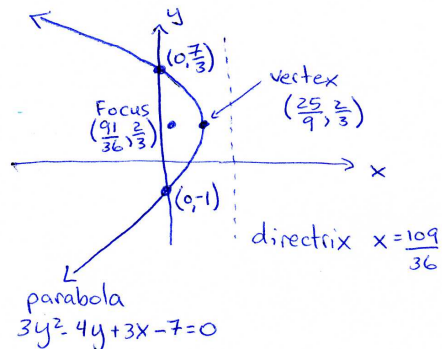 y
(0, 7/3)
vertex
(25/9, 2/3)
Focus
(91/36, 2/3)
x
(0,-1)
directrix x = 109/36
parabola
3y² - 4y + 3x - 7 = 0